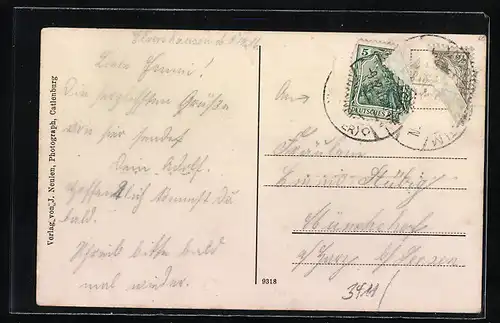 Liebe Emmi!
Die herzlichsten Grüße
von hier sendet
Dein Adolf.
Hoffentlich kommst Du
bald.
Schreib bitte bald
mal wieder.
Verlag von J. Neulen, Photograph, Catlenburg
9318
5
DEUTSCHES
An
Fräulein
Münchehof
a/Harz b/ Seesen
3411